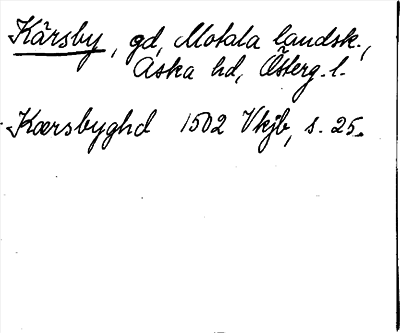 Kårsby, gd, Motala landsk.,
Aska hd, Österg. l.
Kærsbyghd 1502 Vkjb, s. 25.